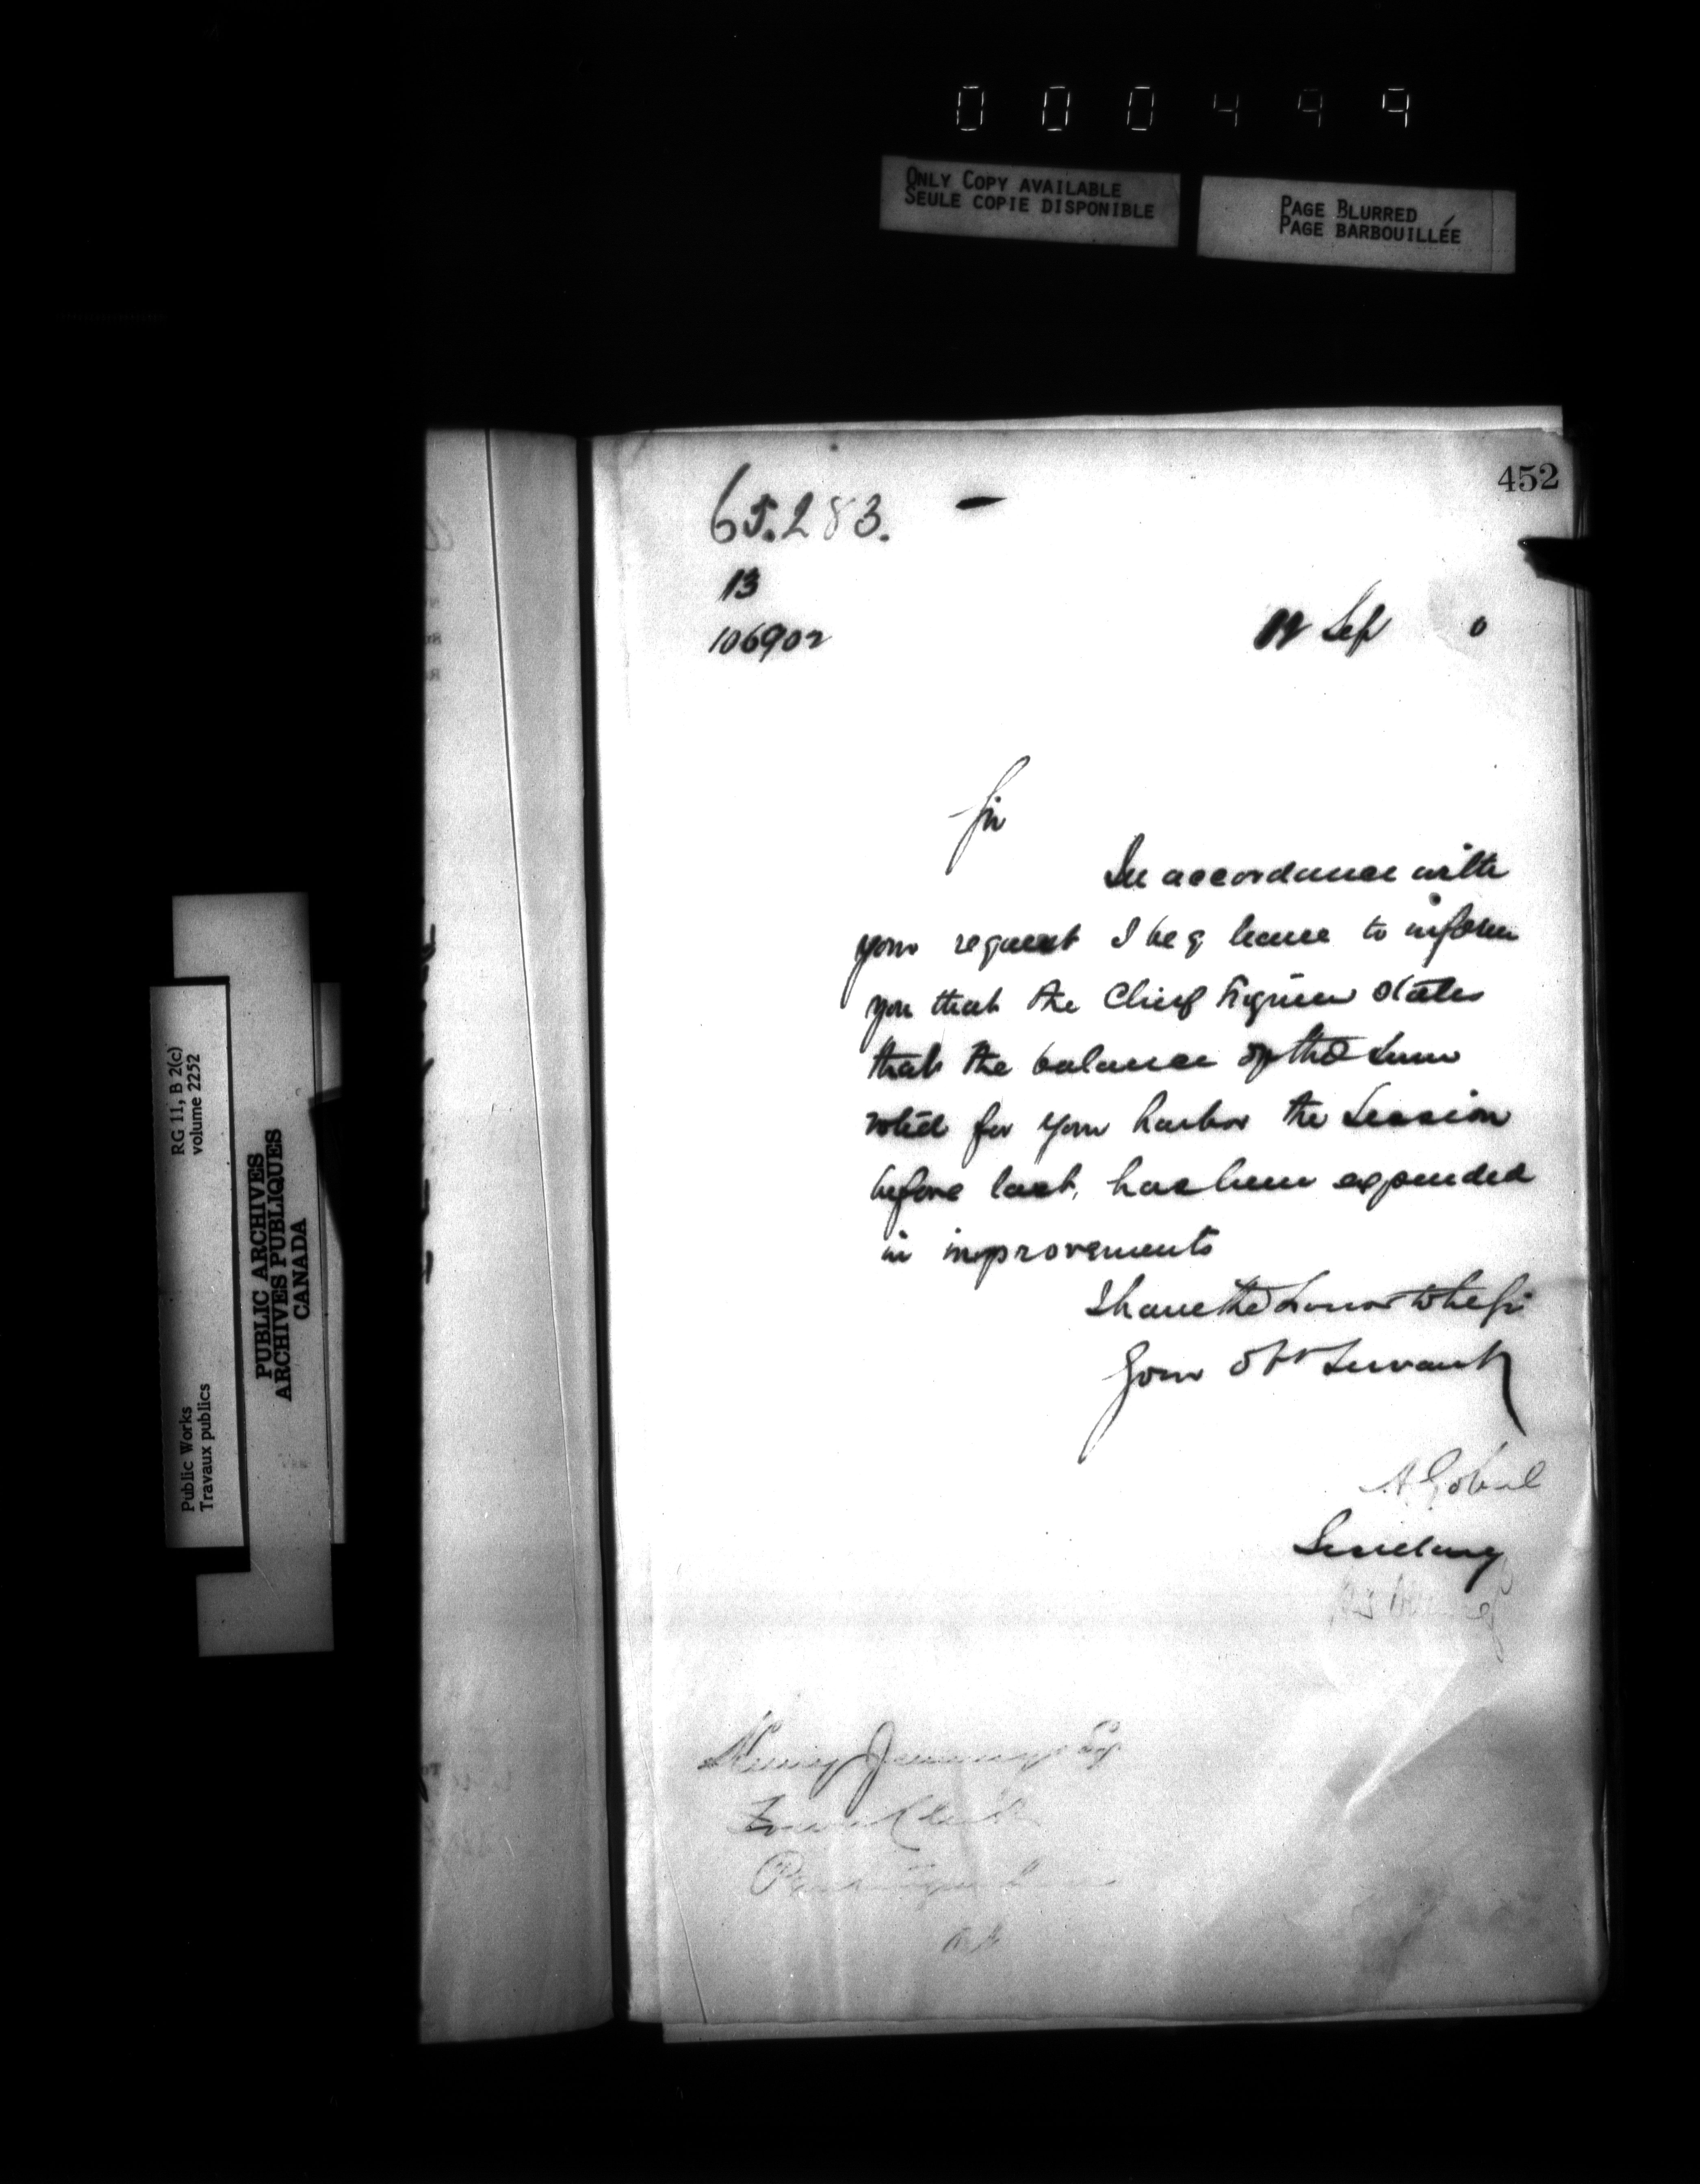 000499
ONLY COPY AVAILABLE
SEULE COPIE DISPONIBLE
PAGE BLURRED
PAGE BARBOUILLÉE
452
65.283.
13
106902
Sep 0
Sir
In accordance with
your request I beg leave to inform
you that the Chief Engineer states
that the balance of the sum
voted for your harbor the Session
before last, has been expended
in improvements
I have the honor to be Sir
Your Obt Servant
A. Gobeil
Secretary
Esq
Town Clerk
RG 11, B 2(c)
volume 2252
Public Works
Travaux publics
PUBLIC ARCHIVES
ARCHIVES PUBLIQUES
CANADA